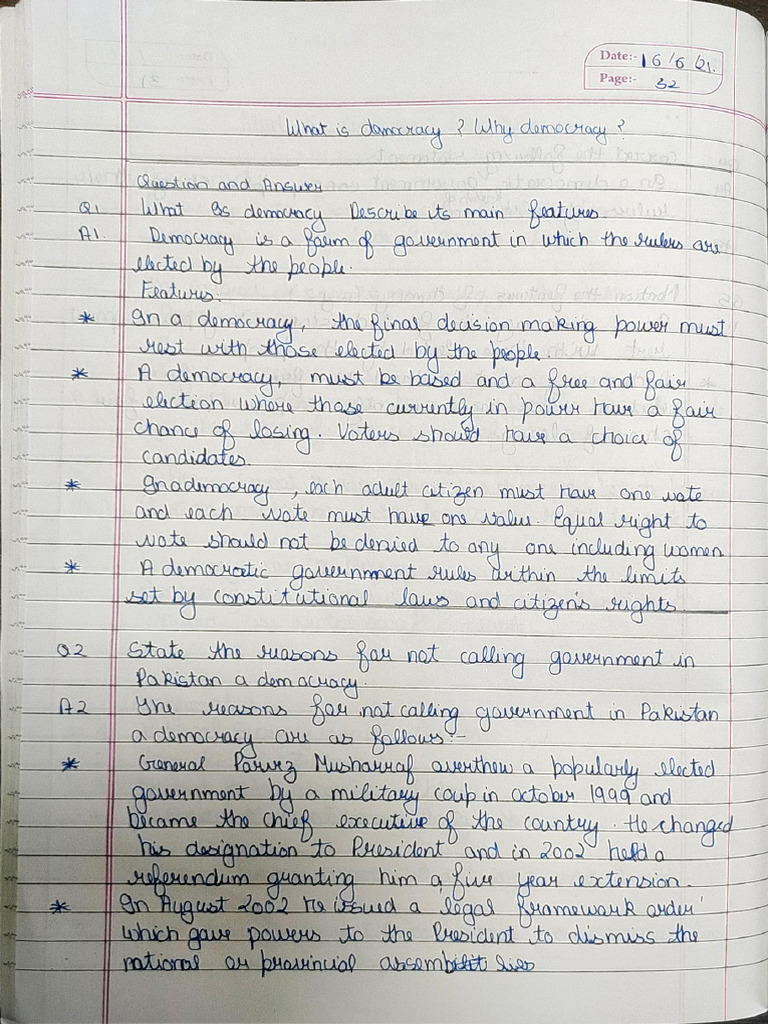 Date:- 16/6/21.
Page:- 32
What is democracy ? Why democracy ?
Question and Answer
Q1 What is democracy Describe its main features
A1. Democracy is a form of government in which the rulers are
elected by the people.
Features.
* In a democracy, the final decision making power must
rest with those elected by the people.
* A democracy, must be based and a free and fair
election where those currently in power have a fair
chance of losing. Voters should have a choice of
candidates.
* In a democracy, each adult citizen must have one vote
and each vote must have one value. Equal right to
vote should not be denied to any one including women
* A democratic government rules within the limits
set by constitutional laws and citizen's rights
Q2 State the reasons for not calling government in
Pakistan a democracy.
A2 The reasons for not calling government in Pakistan
a democracy are as follows:-
* General Parvez Musharraf overthew a popularly elected
government by a military coup in october 1999 and
became the chief executive of the country. He changed
his designation to President and in 2002 held a
referendum granting him a five year extension.
* In August 2002 he issued a legal framework order'
which gave powers to the President to dismiss the
national or provincial assemblies